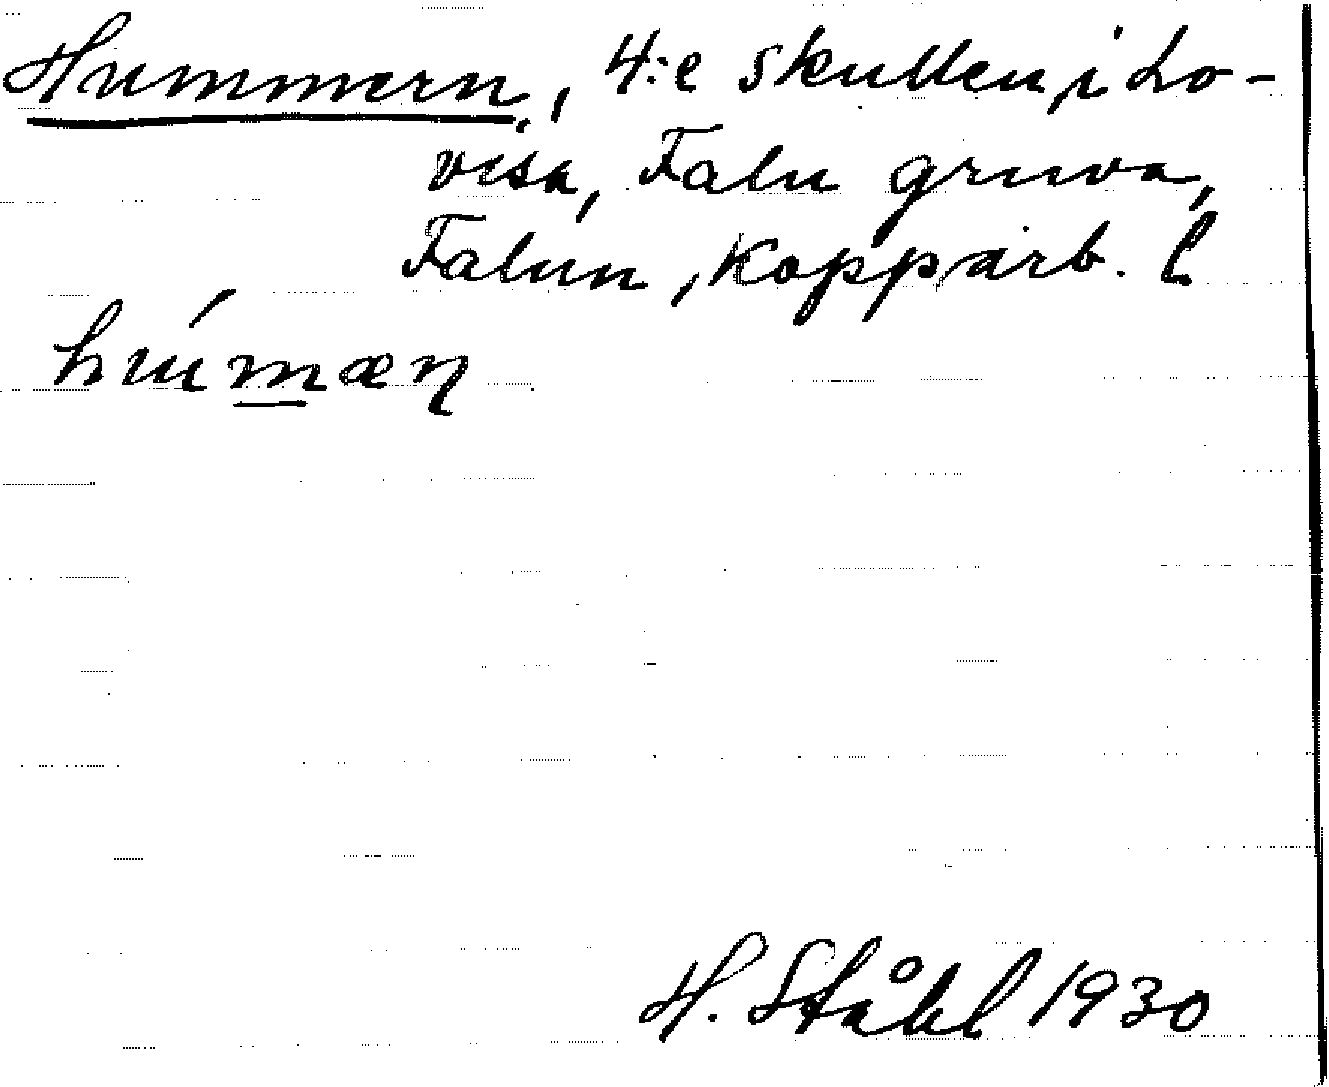 Hummern, 4:e skullen i Lo-
visa, Falu gruva,
Falun, Kopparb. l
húmæn
H. Ståhl 1930